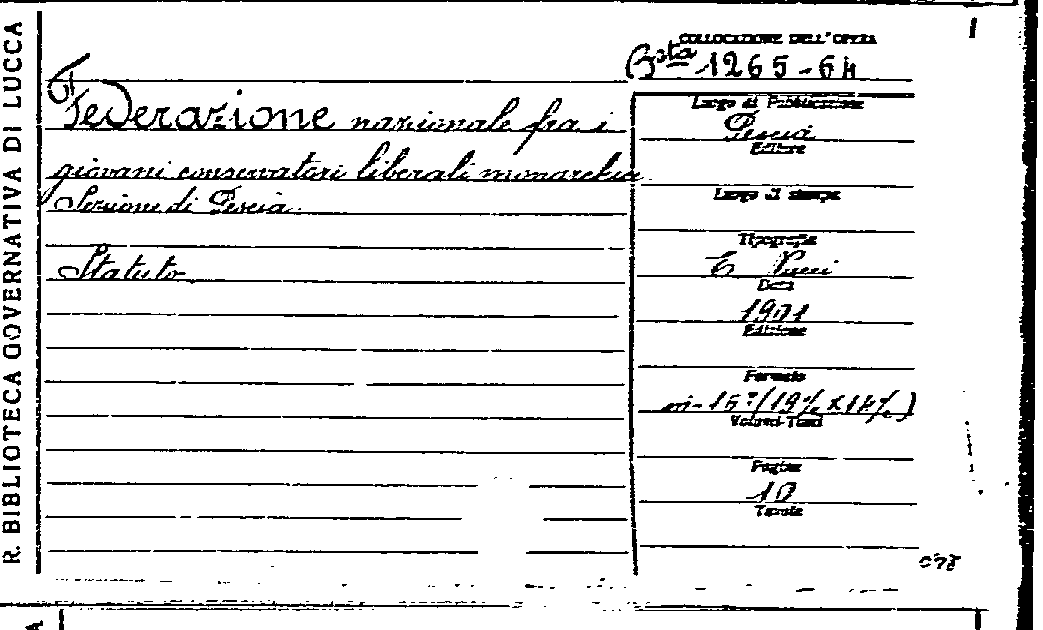 R. BIBLIOTECA GOVERNATIVA DI LUCCA
Federazione nazionale fra i
giovani conservatori liberali monarchici
Sezione di Pescia
Statuto
COLLOCAZIONE DELL'OPERA
Bsta 1265-64
Luogo di Pubblicazione
Pescia
Editore
Luogo di stampa
Tipografia
E Pucci
Data
1901
Edizione
Formato
in-16º (19½ x 14½)
Volumi-Tomi
Pagine
10
Tavole